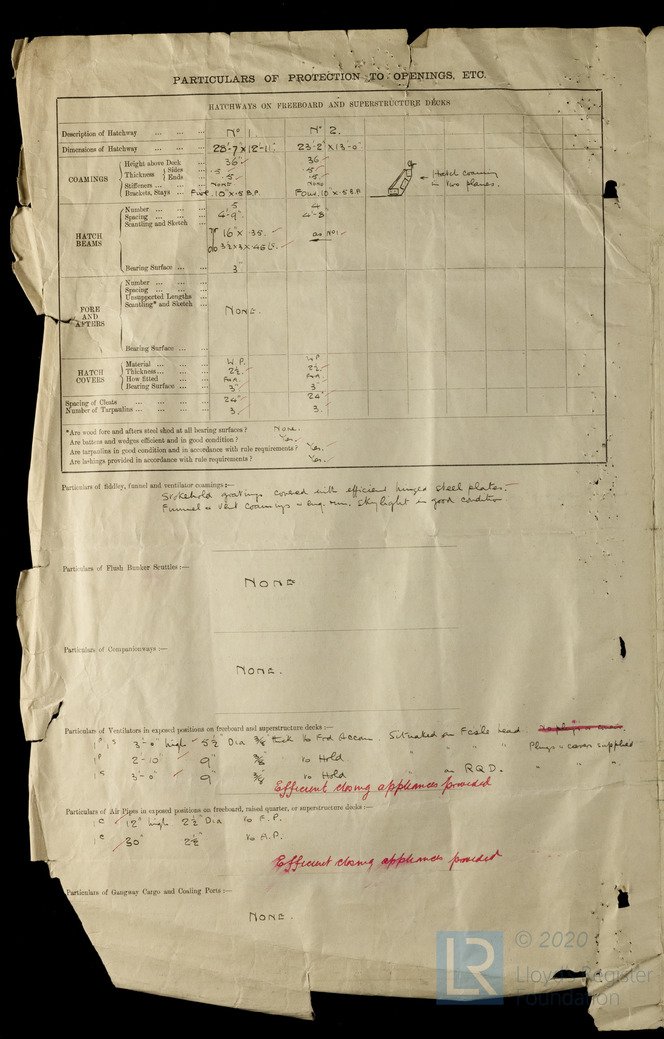 PARTICULARS OF PROTECTION TO OPENINGS, ETC.
HATCHWAYS ON FREEBOARD AND SUPERSTRUCTURE DECKS
Description of Hatchway ... ... ... No 1. No 2.
Dimensions of Hatchway ... ... ... 28'-7" x 12'-11" 23'-2" x 13'-0"
COAMINGS
Height above Deck ... 36" 36
Thickness { Sides ... .5 .5
Ends ... .5 .5
Stiffeners ... ... ... None None
Brackets, Stays ... Five. 10" x .5 B.P. Four. 10 x .5 B.P.
← Hatch coaming
in two planes.
HATCH BEAMS
Number ... ... ... 5 4
Spacing ... ... ... 4'-9" 4'-8"
Scantling and Sketch
16" x .35. as No 1
3½ x 3 x .45 Ls.
Bearing Surface ... ... 3"
FORE AND AFTERS
Number ... ... ...
Spacing ... ... ...
Unsupported Lengths ...
Scantling* and Sketch ...
None.
Bearing Surface ... ...
HATCH COVERS
Material ... ... ... W.P. W.P.
Thickness ... ... ... 2½" 2½
How fitted ... ... F&A. F&A.
Bearing Surface ... ... 3" 3"
Spacing of Cleats ... ... ... ... 24" 24"
Number of Tarpaulins ... ... ... ... 3. 3.
*Are wood fore and afters steel shod at all bearing surfaces? None.
Are battens and wedges efficient and in good condition? Yes.
Are tarpaulins in good condition and in accordance with rule requirements? Yes.
Are lashings provided in accordance with rule requirements? Yes.
Particulars of fiddley, funnel and ventilator coamings:—
Stokehold gratings covered with efficient hinged steel plates.
Funnel & Vent coamings & eng. rm. skylight in good condition
Particulars of Flush Bunker Scuttles:—
NONE
Particulars of Companionways:—
NONE.
Particulars of Ventilators in exposed positions on freeboard and superstructure decks:—
1P 1S 3'-0" high 5½" Dia 3/8 thick to Frd Accom. Situated on Fcsle head
Plugs & covers supplied
1P 2'-10" 9" 3/8 to Hold " " "
1S 3'-0" 9" 3/8 to Hold " on R.Q.D. " " "
Efficient closing appliances provided
Particulars of Air Pipes in exposed positions on freeboard, raised quarter, or superstructure decks:—
1C 12" high 2½" Dia to F.P.
1C 30" 2½" to A.P.
Efficient closing appliances provided
Particulars of Gangway Cargo and Coaling Ports:—
NONE.
LR © 2020
Lloyd's Register
Foundation